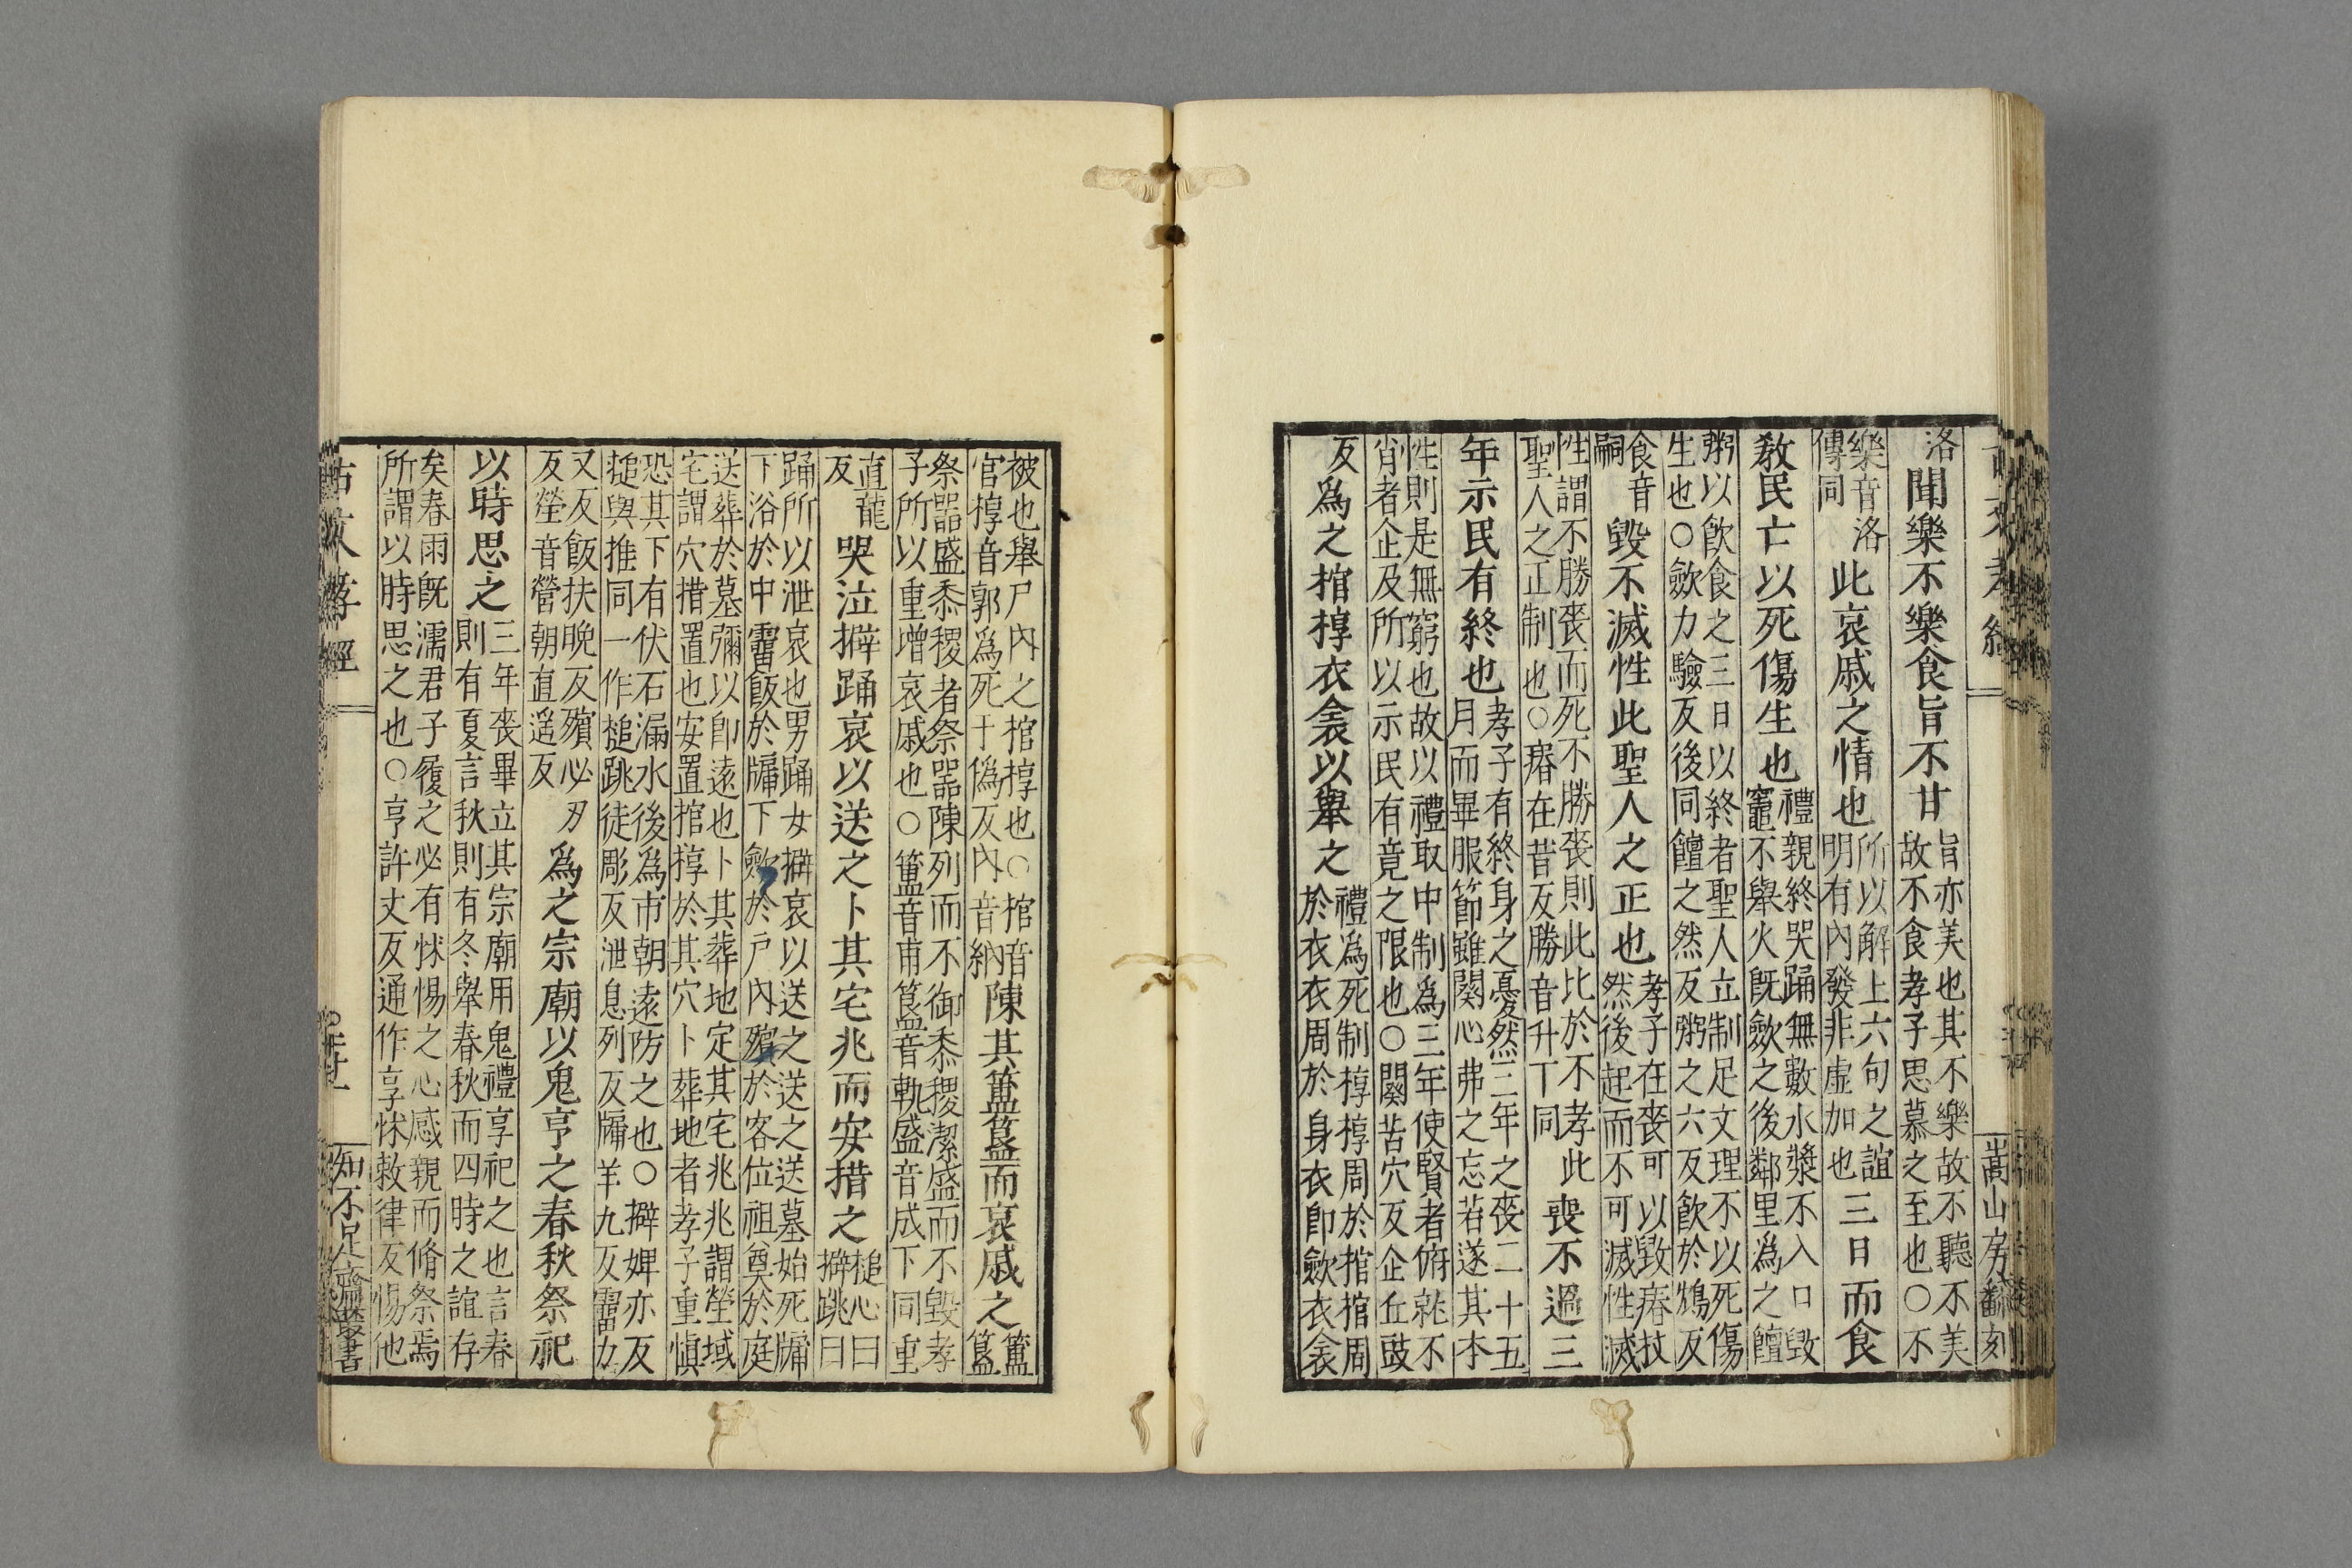 古文孝經 嵩山房翻刻
洛聞樂不樂食旨不甘旨亦美也其不樂故不聽不美
故不食孝子思慕之至也○不
樂音洛
傳同此哀戚之情也所以解上六句之誼
明有內發非虛加也三日而食
敎民亡以死傷生也禮親終哭踊無數水漿不入口毀
竈不舉火旣歛之後鄰里爲之饘
粥以飮食之三日以終者聖人立制足文理不以死傷
生也○歛力驗反後同饘之然反粥之六反飮於鴆反
食音
嗣毀不滅性此聖人之正也孝子在喪可以毀瘠杖
然後起而不可滅性滅
性謂不勝喪而死不勝喪則此比於不孝此
聖人之正制也○瘠在昔反勝音升丅同喪不過三
年示民有終也孝子有終身之憂然三年之喪二十五
月而畢服節雖闋心弗之忘若遂其本
性則是無窮也故以禮取中制爲三年使賢者俯就不
肖者企及所以示民有竟之限也○闋苦穴反企丘豉
反爲之棺椁衣衾以舉之禮爲死制椁椁周於棺棺周
於衣衣周於身衣卽歛衣衾
被也舉尸內之棺椁也○棺音
官椁音郭爲死于僞反內音納陳其簠簋而哀戚之簠
簋
祭器盛黍稷者祭器陳列而不御黍稷潔盛而不毀孝
子所以重增哀戚也○簠音甫簋音軌盛音成下同重
直龍
反哭泣擗踊哀以送之卜其宅兆而安措之搥心曰
擗跳曰
踊所以泄哀也男踊女擗哀以送之送之送墓始死牖
下浴於中霤飯於牖下歛於戶內殯於客位祖奠於庭
送葬於墓彌以卽遠也卜其葬地定其宅兆兆謂塋域
宅謂穴措置也安置棺椁於其穴卜葬地者孝子重愼
恐其下有伏石漏水後爲市朝遠防之也○擗婢亦反
搥與推同一作搥跳徒彫反泄息列反牖羊九反霤力
又反飯扶晚反殯必刃
反塋音營朝直遥反爲之宗廟以鬼亨之春秋祭祀
以時思之三年喪畢立其宗廟用鬼禮享祀之也言春
則有夏言秋則有冬舉春秋而四時之誼存
矣春雨旣濡君子履之必有怵惕之心感親而脩祭焉
所謂以時思之也○亨許丈反通作享怵救律反惕他
古文孝經 知不足齋叢書